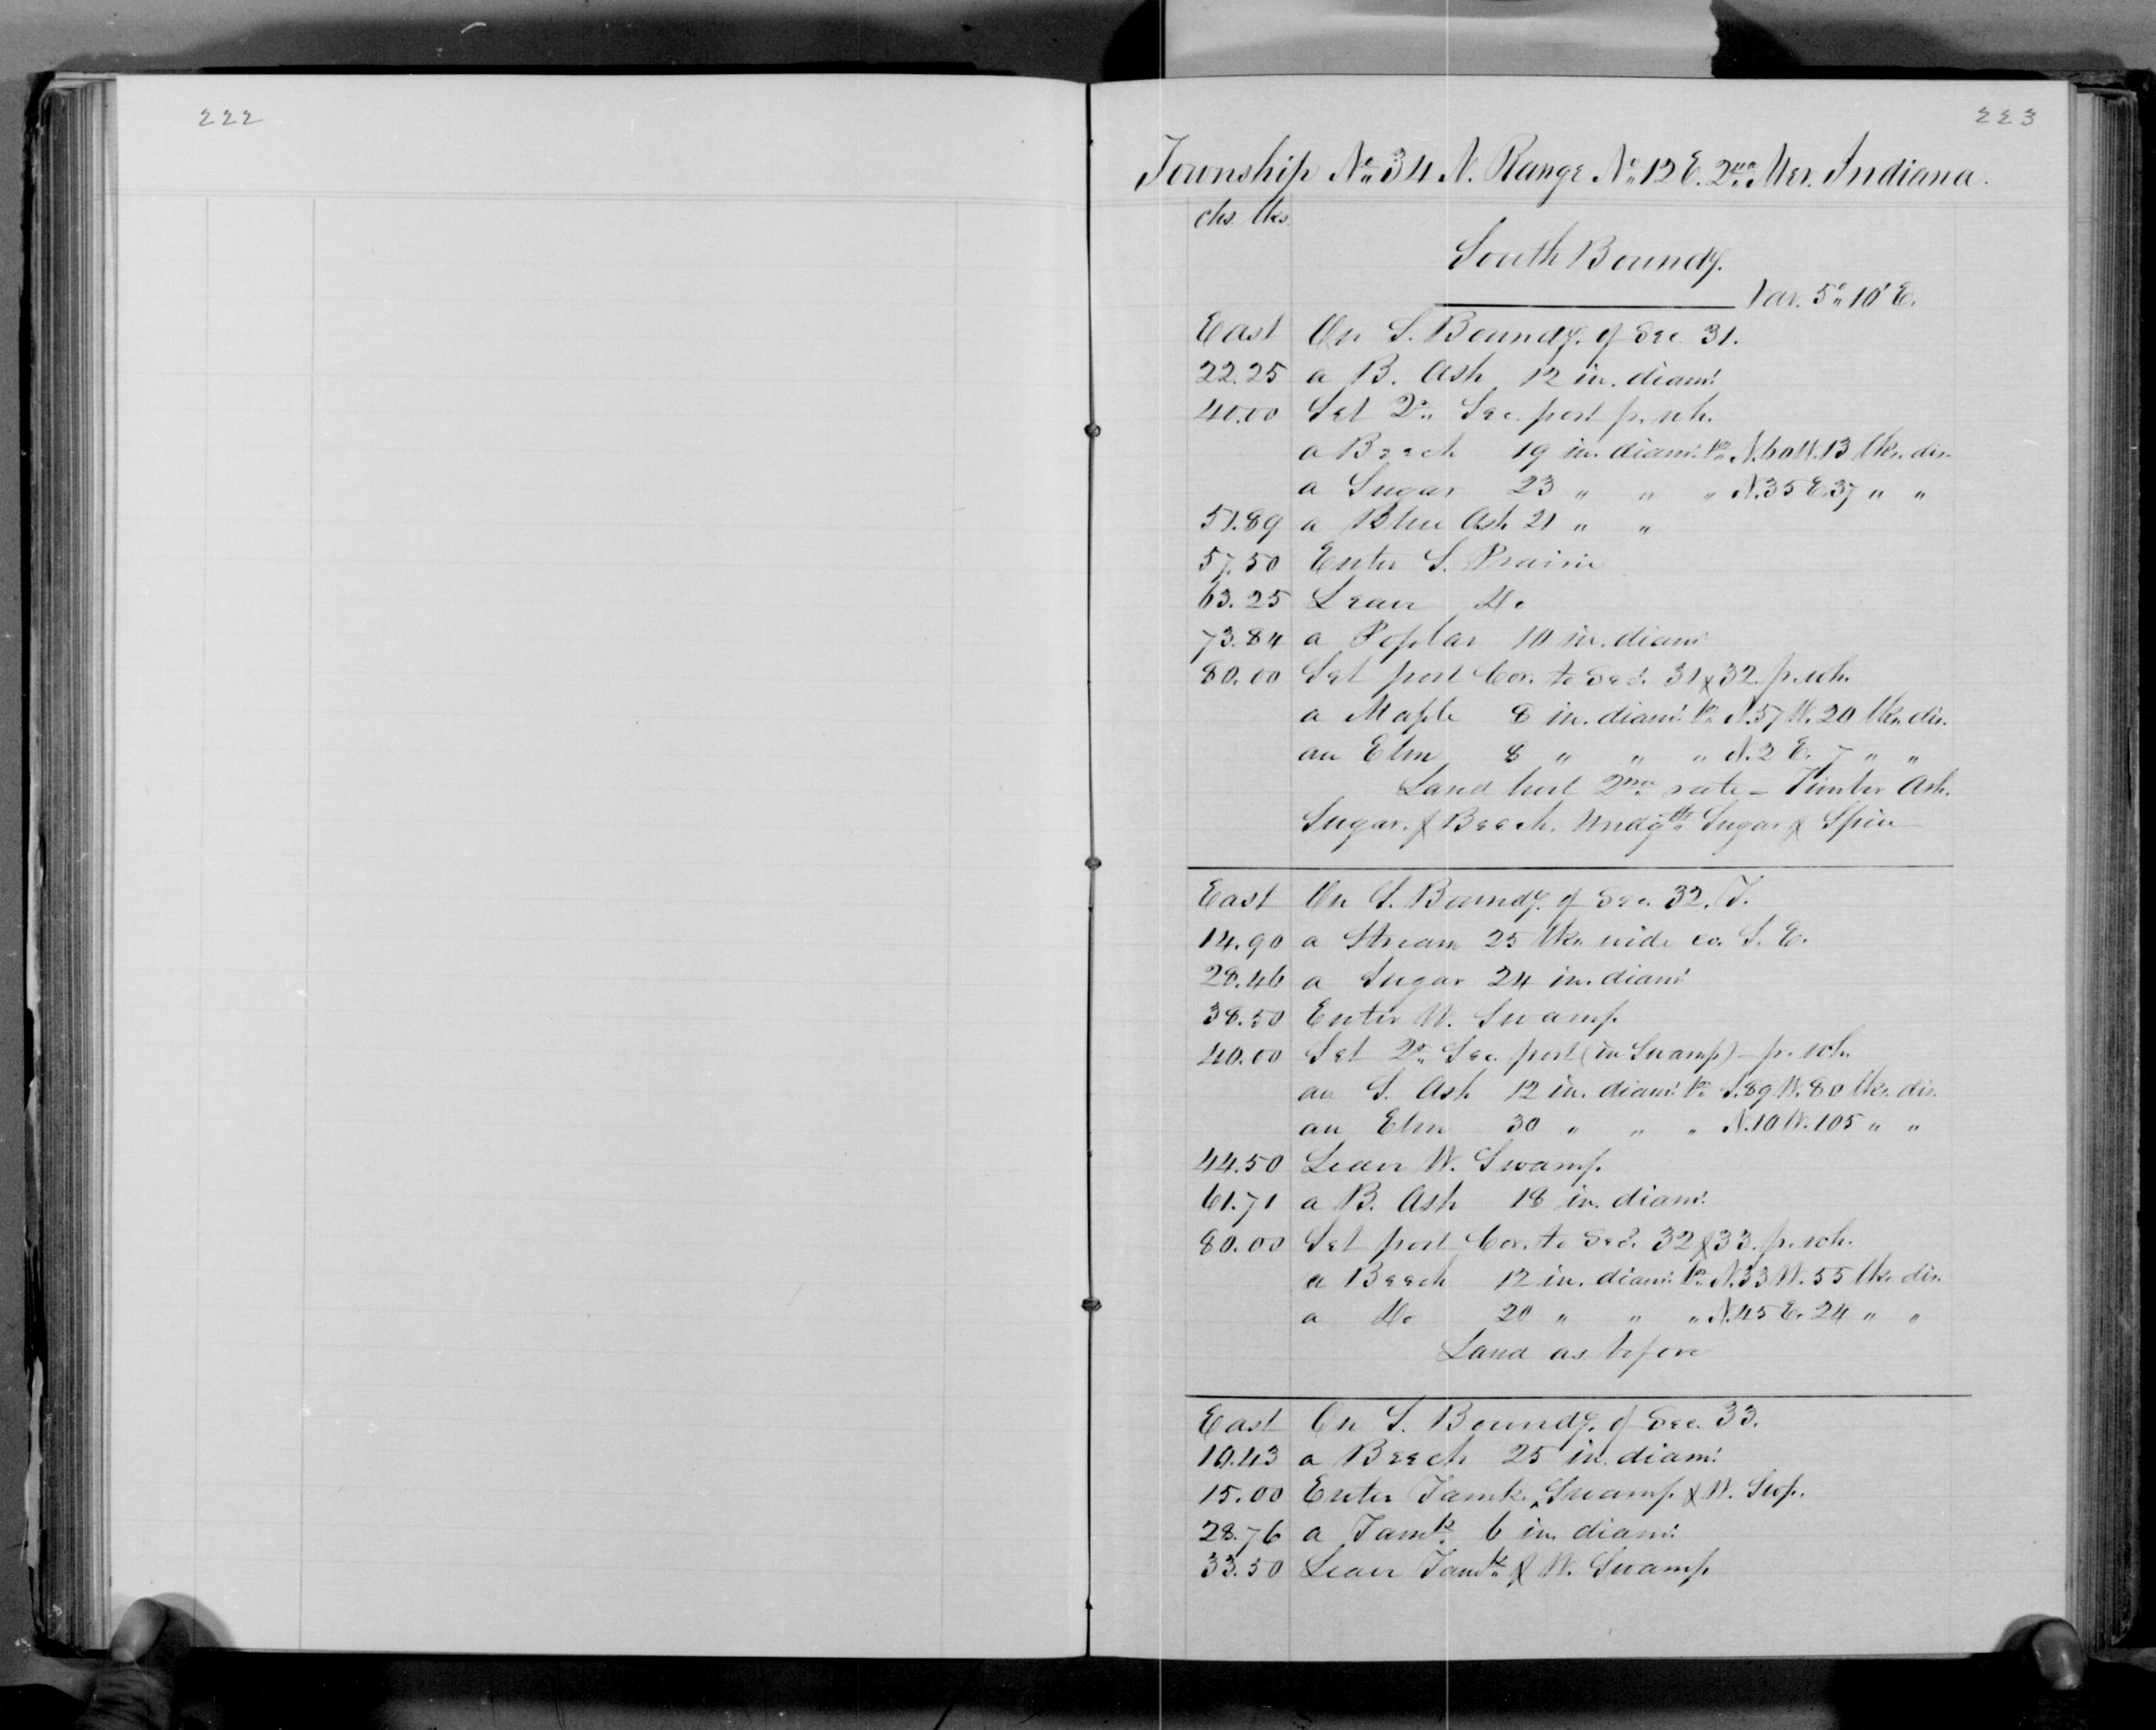 222
223
Township No. 34 N. Range No. 12 E. 2nd Mer. Indiana.
chs. lks.
South Boundy.
Var. 5° 10' E.
East On S. Boundy. of Sec. 31.
22.25 a B. Ash 12 in. diamr.
40.00 Set Qr. Sec. post fr. wh.
a Beech 19 in. diamr. brs. N. 60 W. 13 lks. dis.
a Sugar 23 " " " N. 35 E. 37 " "
51.89 a Blue Ash 21 " "
57.50 Enter S. Prairie
63.25 Leave do
73.84 a Poplar 10 in. diamr.
80.00 Set post Cor. to Secs. 31 & 32 fr. wh.
a Maple 8 in. diamr. brs. N. 57 W. 20 lks. dis.
an Elm 8 " " " N. 2 E. 7 " "
Land best 2nd rate – Timber Ash.
Sugar. & Beech. Undgth. Sugar & Spice
East On S. Boundy. of Sec. 32. T.
14.90 a Stream 25 lks. wide co. S. E.
28.46 a Sugar 24 in. diamr.
38.50 Enter W. Swamp.
40.00 Set Qr. Sec. post (in Swamp) – fr. wh.
an S. Ash 12 in. diamr. brs. S. 89 W. 80 lks. dis.
an Elm 30 " " " N. 10 W. 105 " "
44.50 Leave W. Swamp.
61.71 a B. Ash 18 in. diamr.
80.00 Set post Cor. to Secs. 32 & 33. fr. wh.
a Beech 12 in. diamr. brs. N. 33 W. 55 lks. dis.
a do 20 " " " N. 45 E. 24 " "
Land as before
East On S. Boundy. of Sec. 33.
10.43 a Beech 25 in. diamr.
15.00 Enter Tamk. Swamp. & W. Swp.
28.76 a Tamk. 6 in. diamr.
33.50 Leave Tamk. & W. Swamp